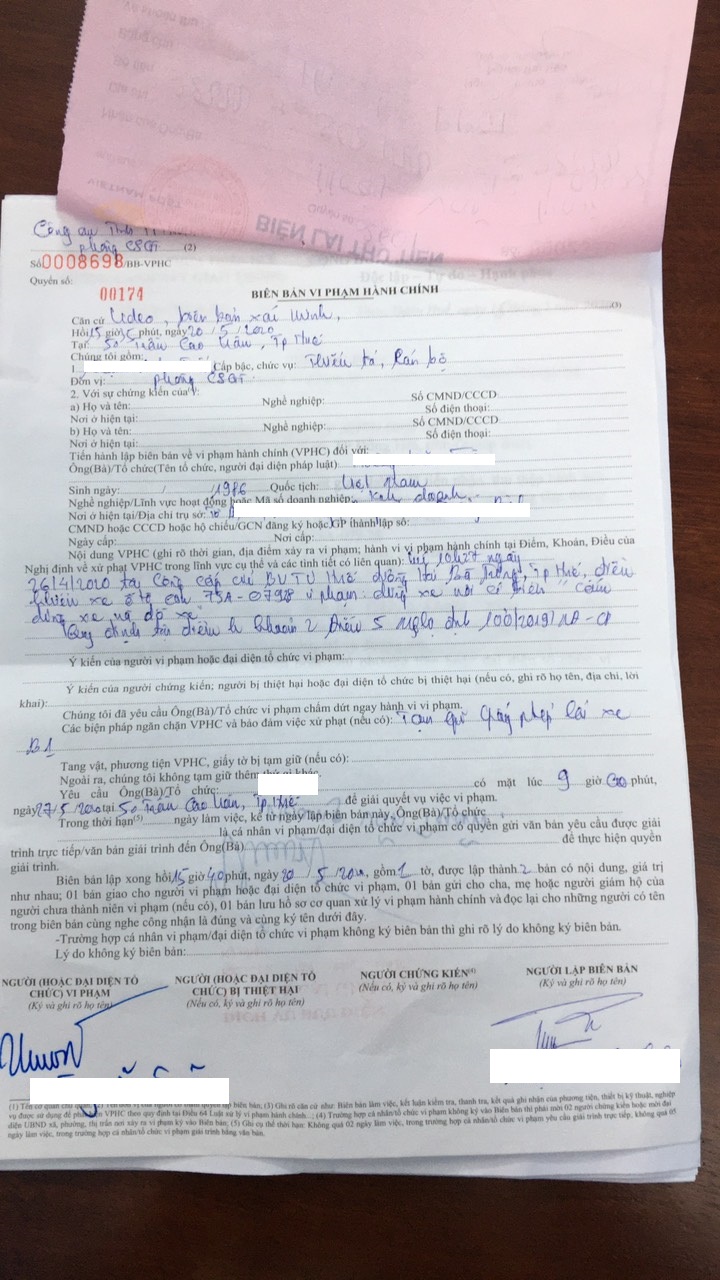 BIÊN LAI THU TIỀN
Công an
phòng CSGT (2)
Số 0008698/BB-VPHC
Quyển số: 00174
BIÊN BẢN VI PHẠM HÀNH CHÍNH
Căn cứ Video, biên bản xác minh, (3)
Hồi 15 giờ 15 phút, ngày 20/5/2020
Tại 50 Trần Cao Vân, Tp Huế
Chúng tôi gồm:
1. Cấp bậc, chức vụ: Thiếu tá, Cán bộ
Đơn vị: phòng CSGT
2. Với sự chứng kiến của:
a) Họ và tên: Nghề nghiệp: Số CMND/CCCD
Nơi ở hiện tại: Số điện thoại:
b) Họ và tên: Nghề nghiệp: Số CMND/CCCD
Nơi ở hiện tại: Số điện thoại:
Tiến hành lập biên bản về vi phạm hành chính (VPHC) đối với:
Ông(Bà)/Tổ chức(Tên tổ chức, người đại diện pháp luật)
Sinh ngày: / /1986 Quốc tịch: Việt Nam
Nghề nghiệp/Lĩnh vực hoạt động hoặc Mã số doanh nghiệp: Kinh doanh
Nơi ở hiện tại/Địa chỉ trụ sở:
CMND hoặc CCCD hoặc hộ chiếu/GCN đăng ký hoặc GP thành lập số:
Ngày cấp: Nơi cấp:
Nội dung VPHC (ghi rõ thời gian, địa điểm xảy ra vi phạm; hành vi vi phạm hành chính tại Điểm, Khoản, Điều của
Nghị định về xử phạt VPHC trong lĩnh vực cụ thể và các tình tiết có liên quan): Lúc 10h27 ngày
26/4/2020 tại Cổng cấp cứu BVTU Huế đường Hai Bà Trưng, Tp Huế, điều
khiển xe ô tô con 75A-0798 vi phạm: dừng xe nơi có biển "cấm
dừng xe và đỗ xe"
Quy định tại điểm h Khoản 2 Điều 5 Nghị định 100/2019/NĐ-CP
Ý kiến của người vi phạm hoặc đại diện tổ chức vi phạm:
Ý kiến của người chứng kiến; người bị thiệt hại hoặc đại diện tổ chức bị thiệt hại (nếu có, ghi rõ họ tên, địa chỉ, lời
khai):
Chúng tôi đã yêu cầu Ông(Bà)/Tổ chức vi phạm chấm dứt ngay hành vi vi phạm.
Các biện pháp ngăn chặn VPHC và bảo đảm việc xử phạt (nếu có): Tạm giữ Giấy phép lái xe
B1
Tang vật, phương tiện VPHC, giấy tờ bị tạm giữ (nếu có):
Ngoài ra, chúng tôi không tạm giữ thêm thứ gì khác.
Yêu cầu Ông(Bà)/Tổ chức: có mặt lúc 9 giờ 00 phút,
ngày 27/5/2020 tại 50 Trần Cao Vân, Tp. Huế để giải quyết vụ việc vi phạm.
Trong thời hạn(5) ngày làm việc, kể từ ngày lập biên bản này, Ông(Bà)/Tổ chức
là cá nhân vi phạm/đại diện tổ chức vi phạm có quyền gửi văn bản yêu cầu được giải
trình trực tiếp/văn bản giải trình đến Ông(Bà) để thực hiện quyền
giải trình.
Biên bản lập xong hồi 15 giờ 40 phút, ngày 20/5/2020, gồm 1 tờ, được lập thành 2 bản có nội dung, giá trị
như nhau; 01 bản giao cho người vi phạm hoặc đại diện tổ chức vi phạm, 01 bản gửi cho cha, mẹ hoặc người giám hộ của
người chưa thành niên vi phạm (nếu có), 01 bản lưu hồ sơ cơ quan xử lý vi phạm hành chính và đọc lại cho những người có tên
trong biên bản cùng nghe công nhận là đúng và cùng ký tên dưới đây.
-Trường hợp cá nhân vi phạm/đại diện tổ chức vi phạm không ký biên bản thì ghi rõ lý do không ký biên bản.
Lý do không ký biên bản:
NGƯỜI (HOẶC ĐẠI DIỆN TỔ CHỨC) VI PHẠM
(Ký và ghi rõ họ tên)
NGƯỜI (HOẶC ĐẠI DIỆN TỔ CHỨC) BỊ THIỆT HẠI
(Nếu có, ký và ghi rõ họ tên)
NGƯỜI CHỨNG KIẾN(4)
(Nếu có, ký và ghi rõ họ tên)
NGƯỜI LẬP BIÊN BẢN
(Ký và ghi rõ họ tên)
(3) Ghi rõ căn cứ như: Biên bản làm việc, kết luận kiểm tra, thanh tra, kết quả ghi nhận của phương tiện, thiết bị kỹ thuật, nghiệp
vụ được sử dụng để phát hiện VPHC theo quy định tại Điều 64 Luật xử lý vi phạm hành chính...; (4) Trường hợp cá nhân/tổ chức vi phạm không ký vào Biên bản thì phải mời 02 người chứng kiến hoặc mời đại
diện UBND xã, phường, thị trấn nơi xảy ra vi phạm ký vào Biên bản; (5) Ghi cụ thể thời hạn: Không quá 02 ngày làm việc, trong trường hợp cá nhân/tổ chức vi phạm yêu cầu giải trình trực tiếp, không quá 05
ngày làm việc, trong trường hợp cá nhân/tổ chức vi phạm giải trình bằng văn bản.